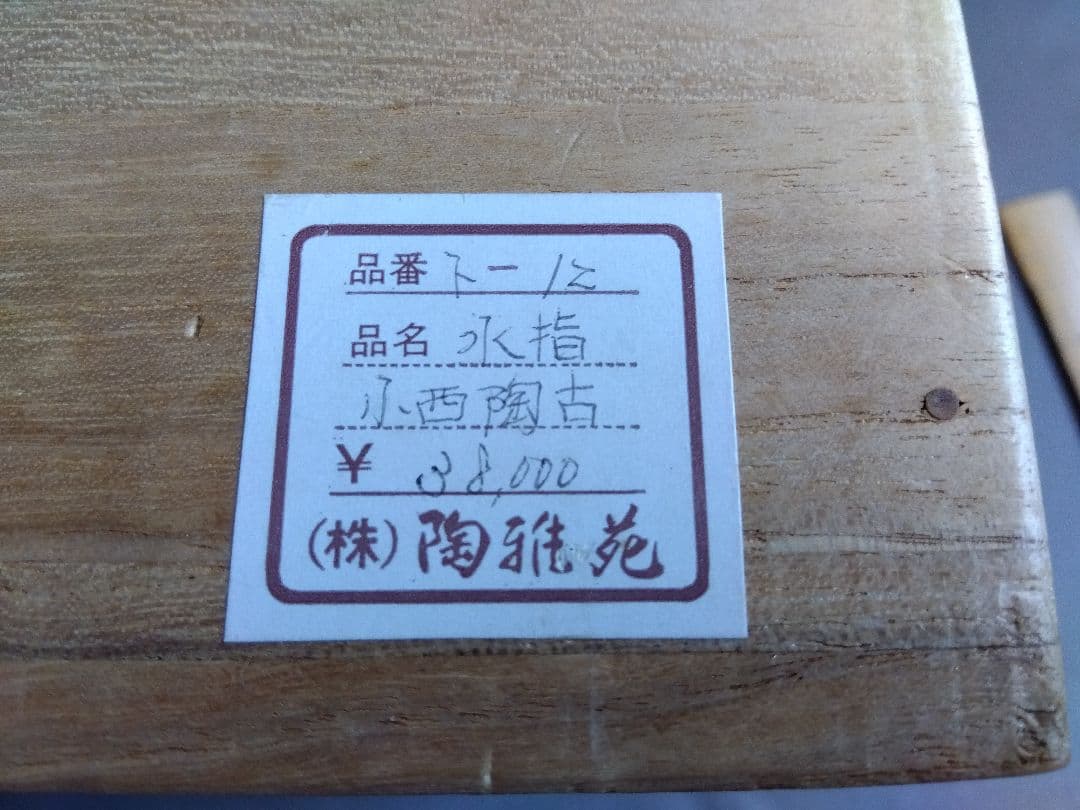 品番 ト-12
品名 水指
小西陶古
¥ 38,000
(株)陶雅苑